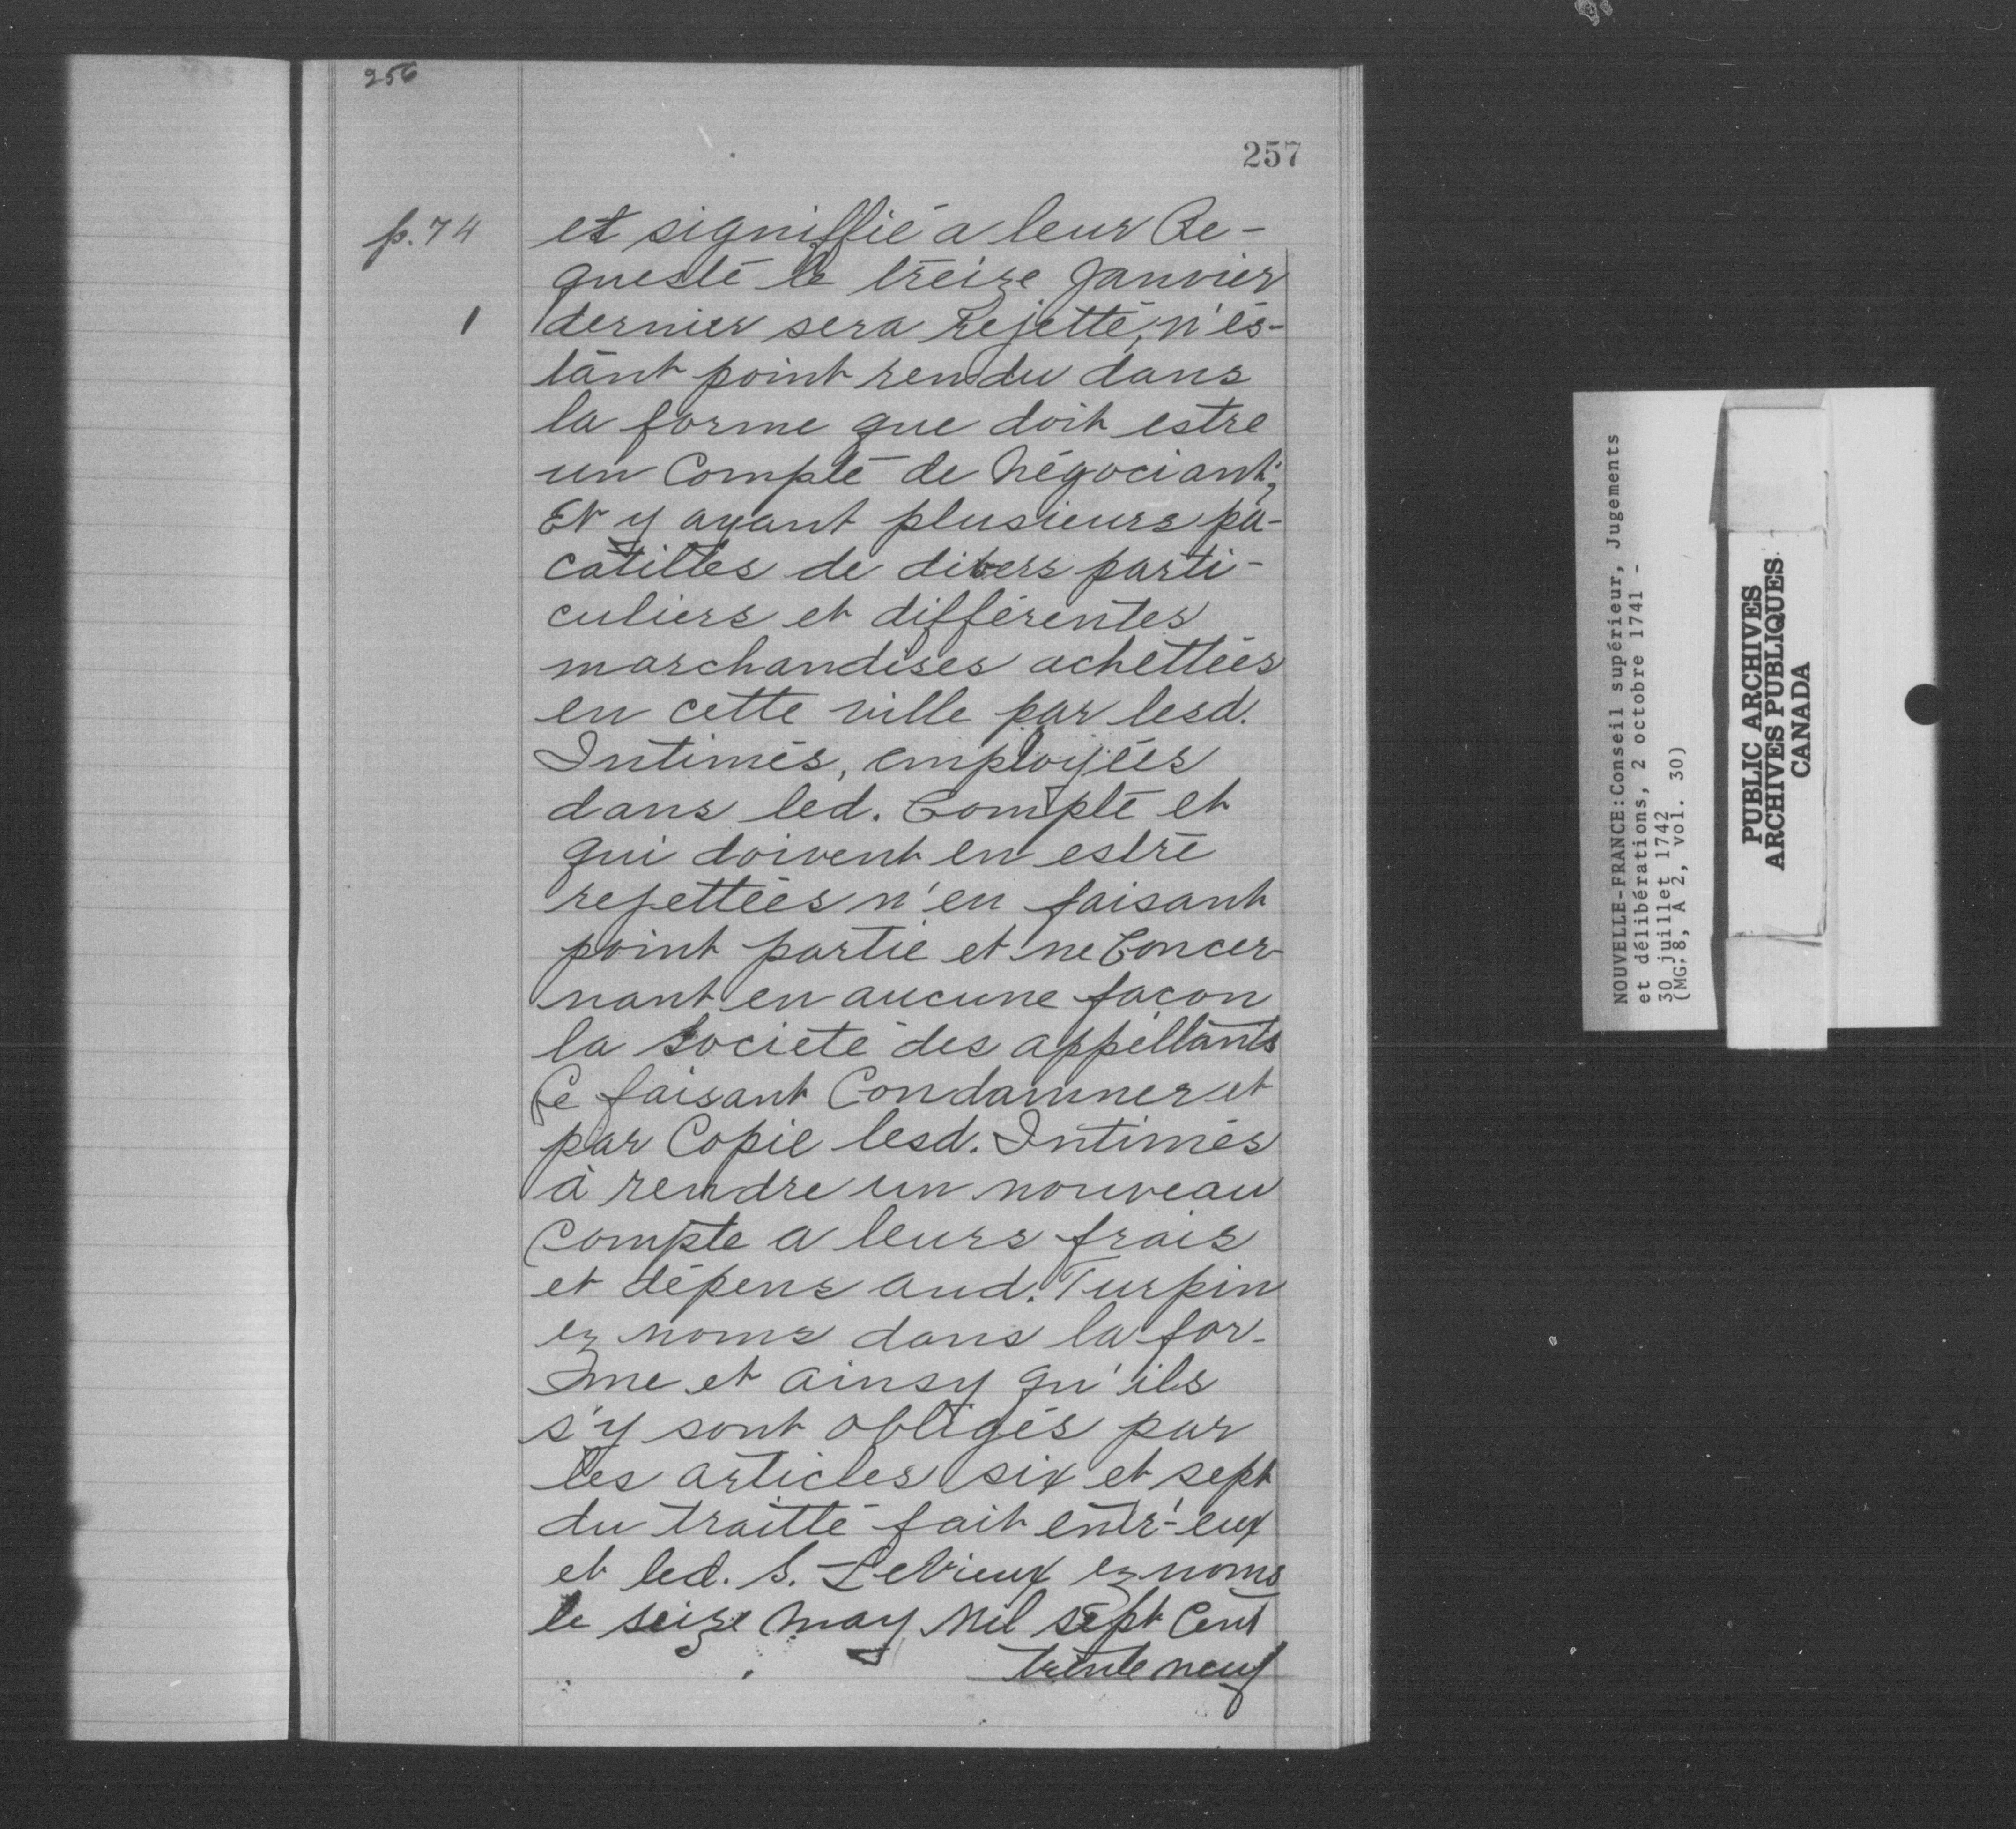 256
257
p.74
et signiffié a leur Re-
questé le treize Janvier
dernier sera rejetté, n'és-
tant point rendu dans
la forme que doit estre
un Compte de Négociant;
Et y ayant plusieurs pa-
catilles de divers parti-
culiers et différentes
marchandises achettées
en cette ville par lesd.
Intimés, employées
dans led. Compte et
qui doivent en estre
rejettées n'en faisant
point partie et ne Concer-
nant en aucune façon
la Societé des appellants
Ce faisant Condamner et
par Copie lesd. Intimés
à rendre un nouveau
Compte a leurs frais
et dépens aud. Turpin
ez noms dans la for-
me et ainsy qu'ils
s'y sont obligés par
les articles six et sept
du traitté fait entr'-eux
et led. S. LeVieux ez noms
le seize may mil sept Cent
trente neuf
NOUVELLE-FRANCE:Conseil supérieur, Jugements
et délibérations, 2 octobre 1741 -
30 juillet 1742
(MG. 8, A 2, vol. 30)
PUBLIC ARCHIVES
ARCHIVES PUBLIQUES
CANADA